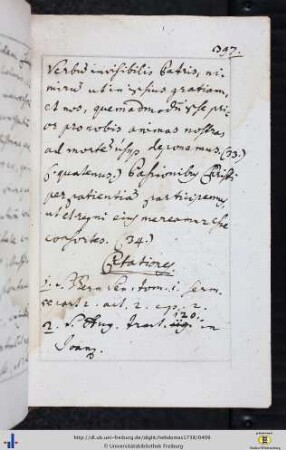 397.
Verbũ invisibilis Patris, ni-
mirũ ut in ipsius gratiam,
et nos, quemadmodũ ipse pri-
or pro nobis animas nostras
ad mortẽ usqᵹ deponamus. (33.)
(quatenus.) Passionibus Christi
per patientiã participemus,
ut et regni eius mereamur esse
consortes. (34.)
Citationes
1. S. Bern. Sen. tom. 1. serm.
art. 2. cap. 2.
120.
2. S. Aug. tract. in
Joan.
http://dl.ub.uni-freiburg.de/diglit/hebdomas1738/0409
© Universitätsbibliothek Freiburg